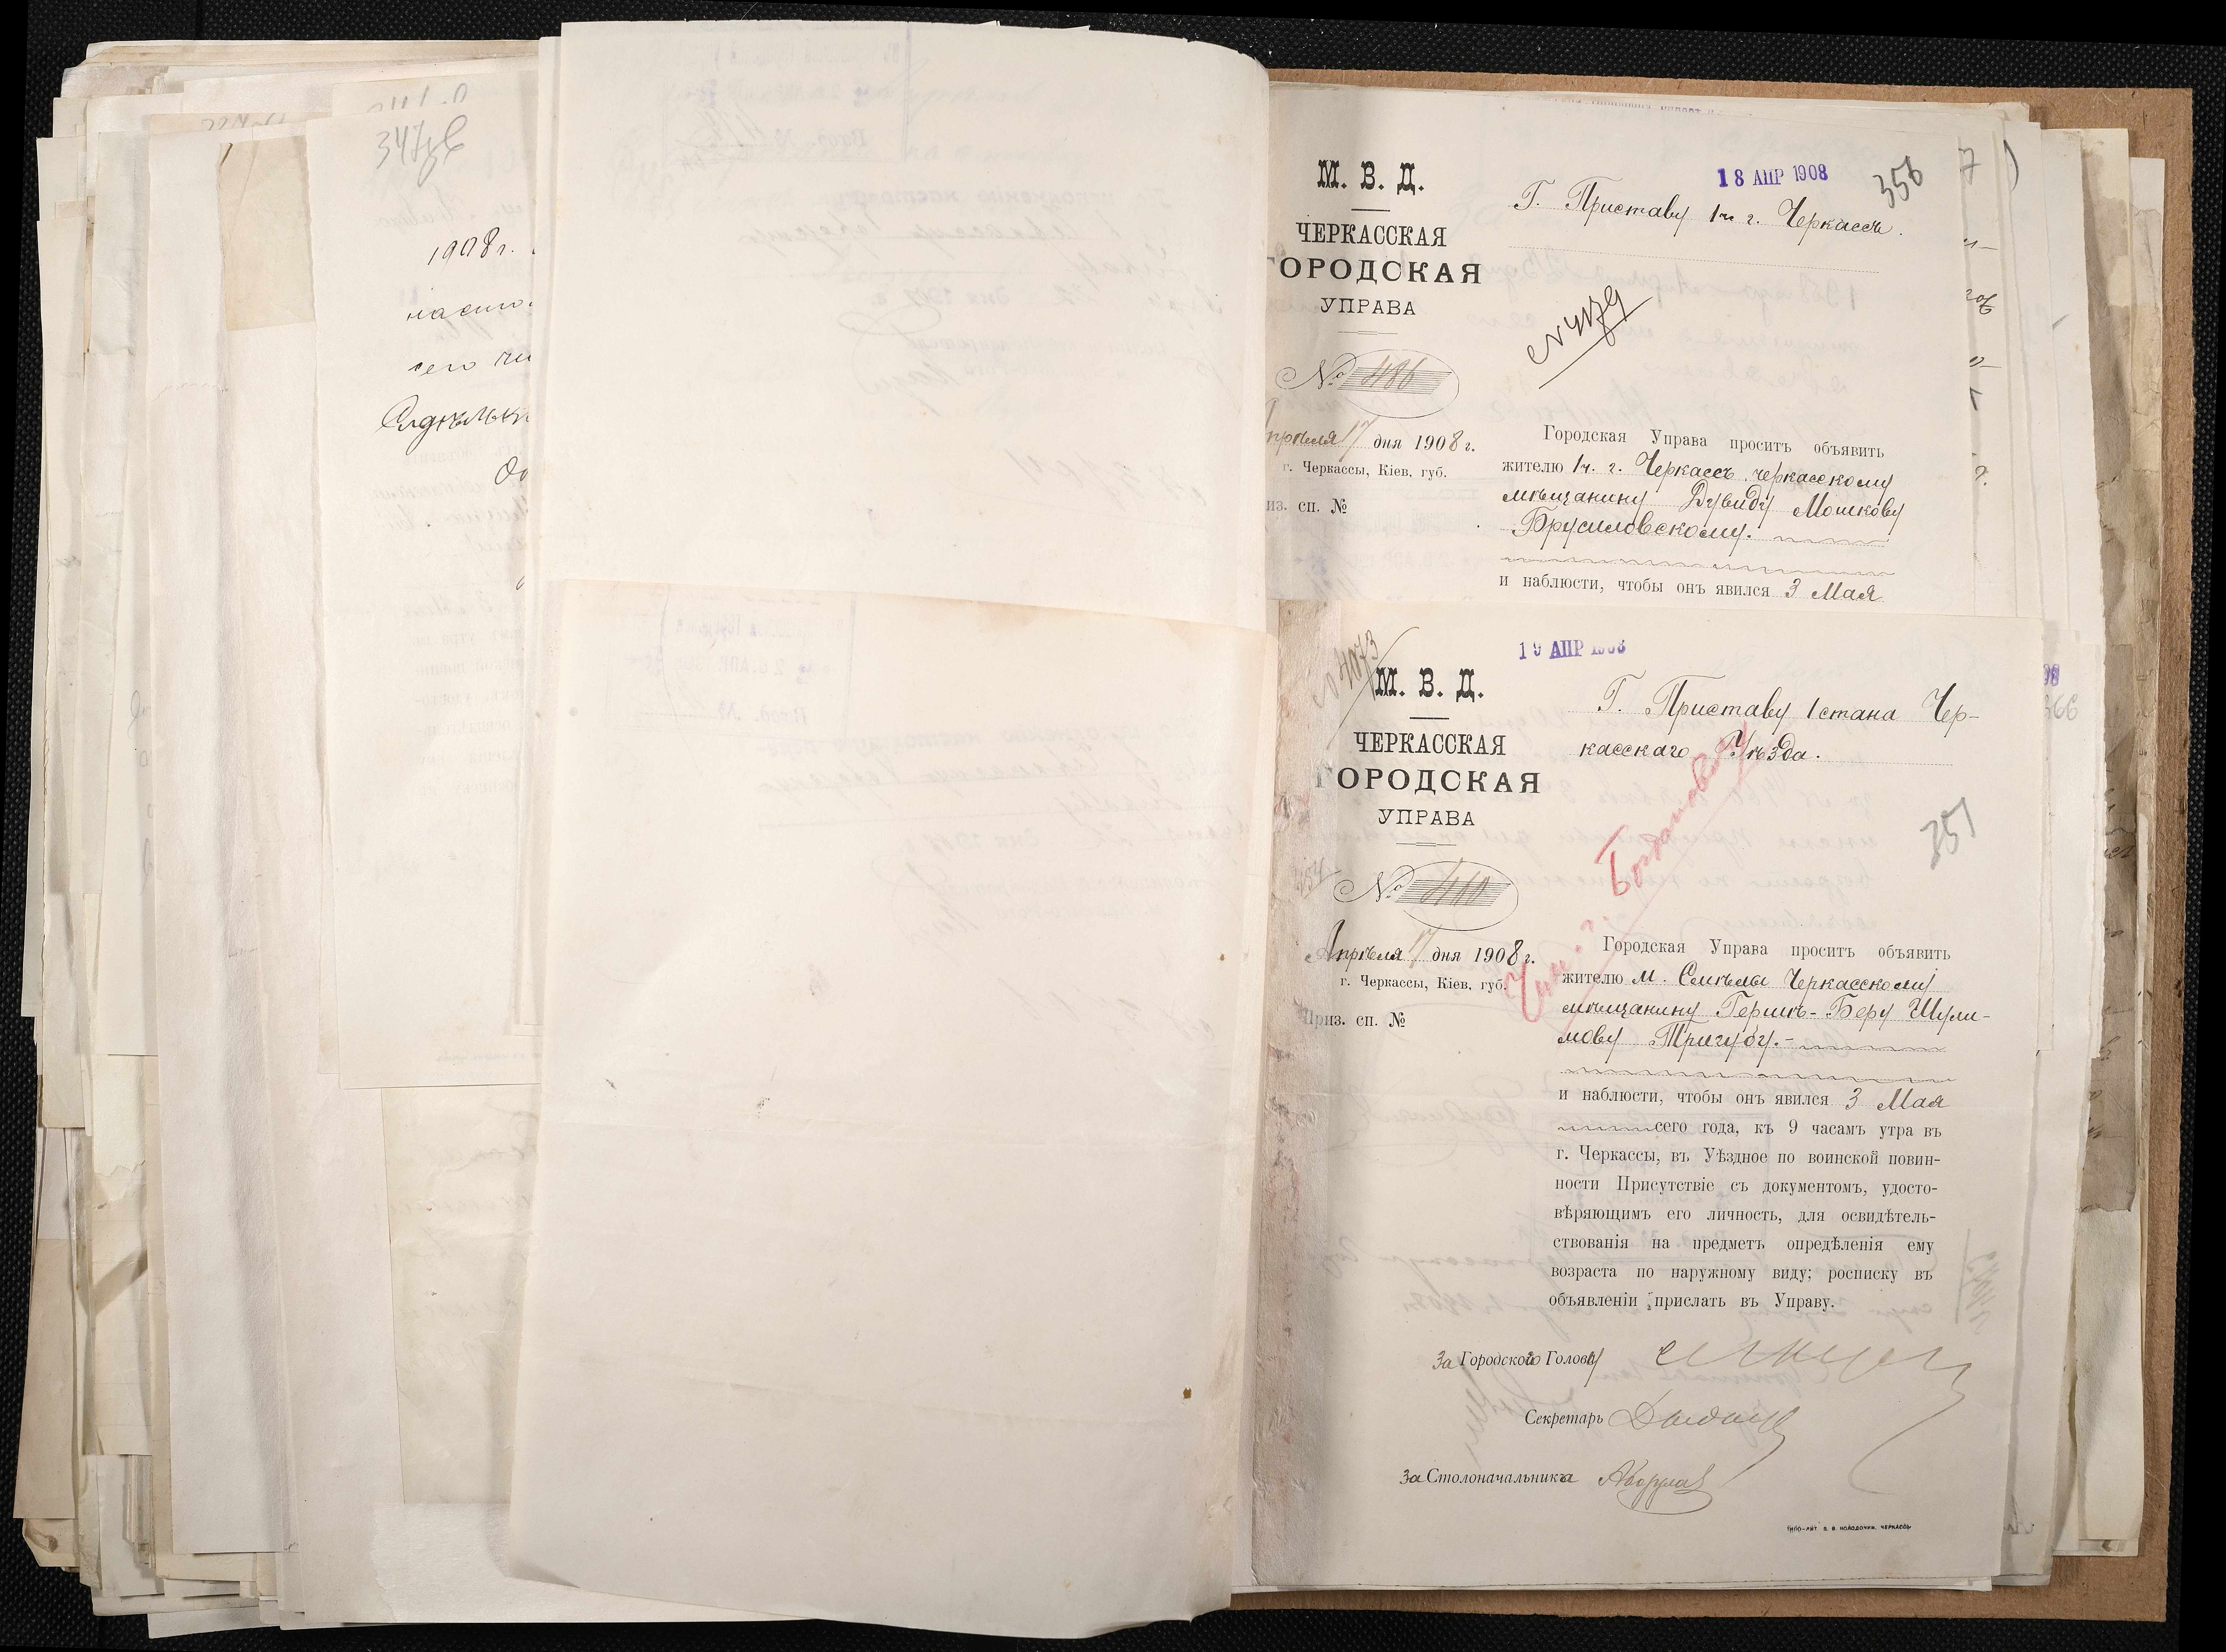 347
1908 г.
насто
сего чи
До
М. В. Д.
ЧЕРКАССКАЯ
ГОРОДСКАЯ
УПРАВА
№ 486
Апрѣля 17 дня 1908 г.
г. Черкассы, Кіев. губ.
из. сп. №
18 АПР 1908
356
Г. Приставу 1 ч. г. Черкассъ.
№ 4179
Городская Управа проситъ объявить
жителю 1 ч. г. Черкассъ черкасскому
мѣщанину Дувиду Мошкову
Брусиловскому.
и наблюсти, чтобы онъ явился 3 Мая
№ 4073
М. В. Д.
ЧЕРКАССКАЯ
ГОРОДСКАЯ
УПРАВА
№ 460
Апрѣля 17 дня 1908 г.
г. Черкассы, Кіев. губ.
Приз. сп. №
19 АПР 1908
Г. Приставу 1 стана Чер-
касскаго Уѣзда.
357
Городская Управа проситъ объявить
жителю м. Смѣлы Черкасскому
мѣщанину Гершъ-Беру Шули-
мову Тригубу.-
и наблюсти, чтобы онъ явился 3 Мая
сего года, къ 9 часамъ утра въ
г. Черкассы, въ Уѣздное по воинской повин-
ности Присутствіе съ документомъ, удосто-
вѣряющимъ его личность, для освидѣтель-
ствованія на предметъ опредѣленія ему
возраста по наружному виду; росписку въ
объявленіи прислать въ Управу.
За Городского Голову
Секретарь
За Столоначальника
366